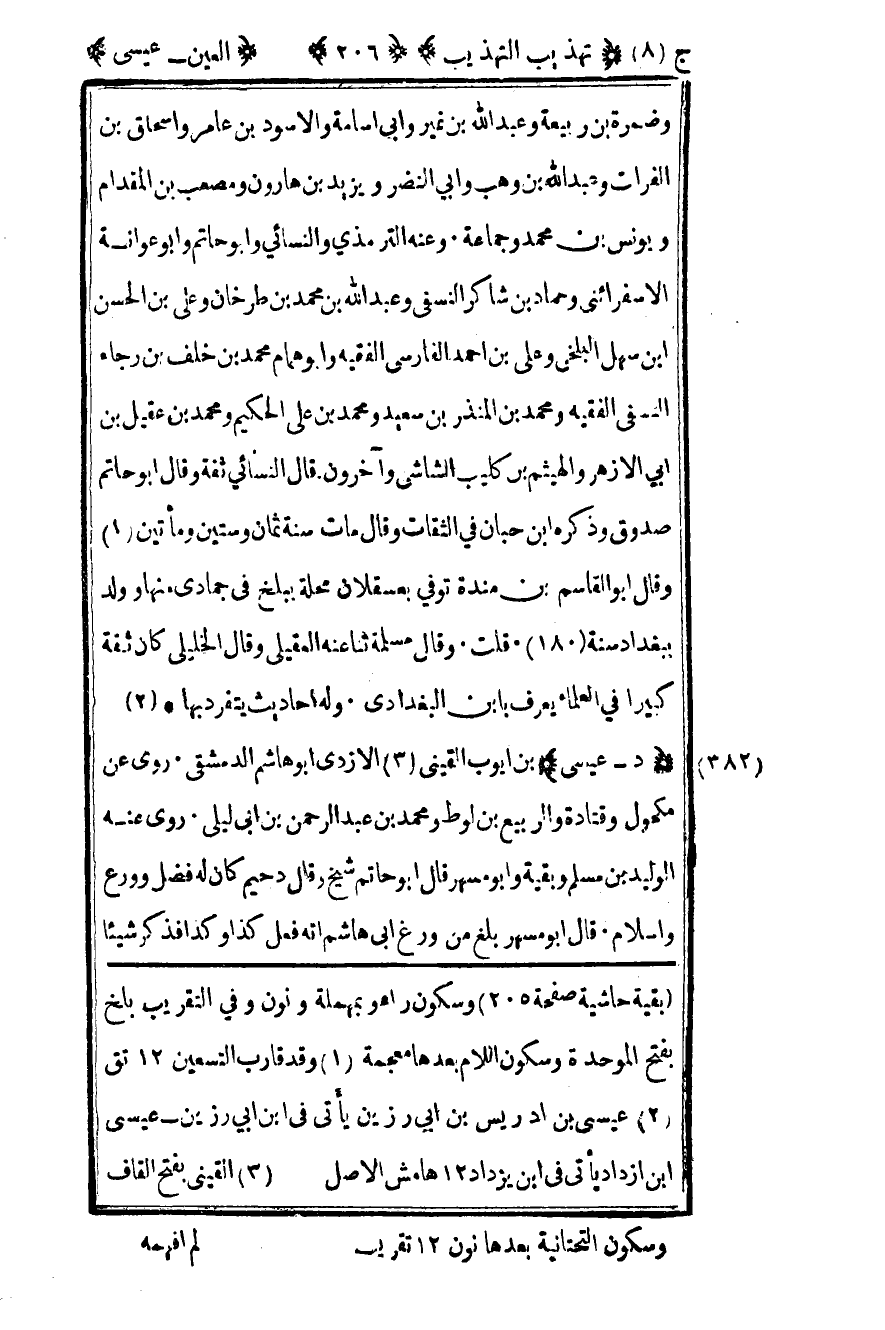 ج (٨) ﴿ تهذيب التهذيب ﴾ ﴿ ٢٠٦ ﴾ ﴿ العين ـ عيسى ﴾
وضمرة بن ربيعة وعبدالله بن نمير وابي اسامة والاسود بن عامر واسحاق بن
الفرات وعبدالله بن وهب وابي النضر ويزيد بن هارون ومصعب بن المقدام
ويونس بن محمد وجماعة ٠ وعنه الترمذي والنسائي وابو حاتم وابو عوانة
الاسفرائنى وحماد بن شاكر النسفى وعبدالله بن محمد بن طرخان وعلى بن الحسن
ابن سهل البلخى وعلى بن احمد الفارسى الفقيه وابو همام محمد بن خلف بن رجاء
النسفى الفقيه ومحمد بن المنذر بن سعيد ومحمد بن على الحكيم ومحمد بن عقيل بن
ابي الازهر والهيثم بن كليب الشاشى وآخرون. قال النسائي ثقة وقال ابو حاتم
صدوق وذكره ابن حبان في الثقات وقال مات سنة ثمان وستين ومأتين (١)
وقال ابو القاسم بن مندة توفي بعسقلان محلة ببلخ فى جمادى منها وولد
ببغداد سنة (١٨٠) ٠ قلت ٠ وقال مسلمة ثنا عنه العقيلى وقال الخليلى كان ثقة
كبيرا في العلماء يعرف بابن البغدادى ٠ وله احاديث يتفرد بها * (٢)
(٣٨٢) ﴿ د ـ عيسى ﴾ بن ايوب القينى (٣) الازدى ابو هاشم الدمشقى ٠ روى عن
مكحول وقتادة والربيع بن لوط ومحمد بن عبد الرحمن بن ابى ليلى ٠ روى عنه
الوليد بن مسلم وبقية وابو مسهر قال ابو حاتم شيخ وقال دحيم كان له فضل وورع
واسلام ٠ قال ابو مسهر بلغ من ورع ابى هاشم انه فعل كذا وكذا فذكر شيئا
(بقية حاشية صفحة ٢٠٥) وسكون راء وبمهملة ونون وفي التقريب بلخ
بفتح الموحدة وسكون اللام بعدها معجمة (١) وقد قارب التسعين ١٢ تق
(٢) عيسى بن ادريس بن ابي رزين يأتى فى ابن ابي رزين ـ عيسى
ابن ازداد يأتى فى ابن يزداد ١٢ هامش الاصل (٣) القينى بفتح القاف
وسكون التحتانية بعدها نون ١٢ تقريب